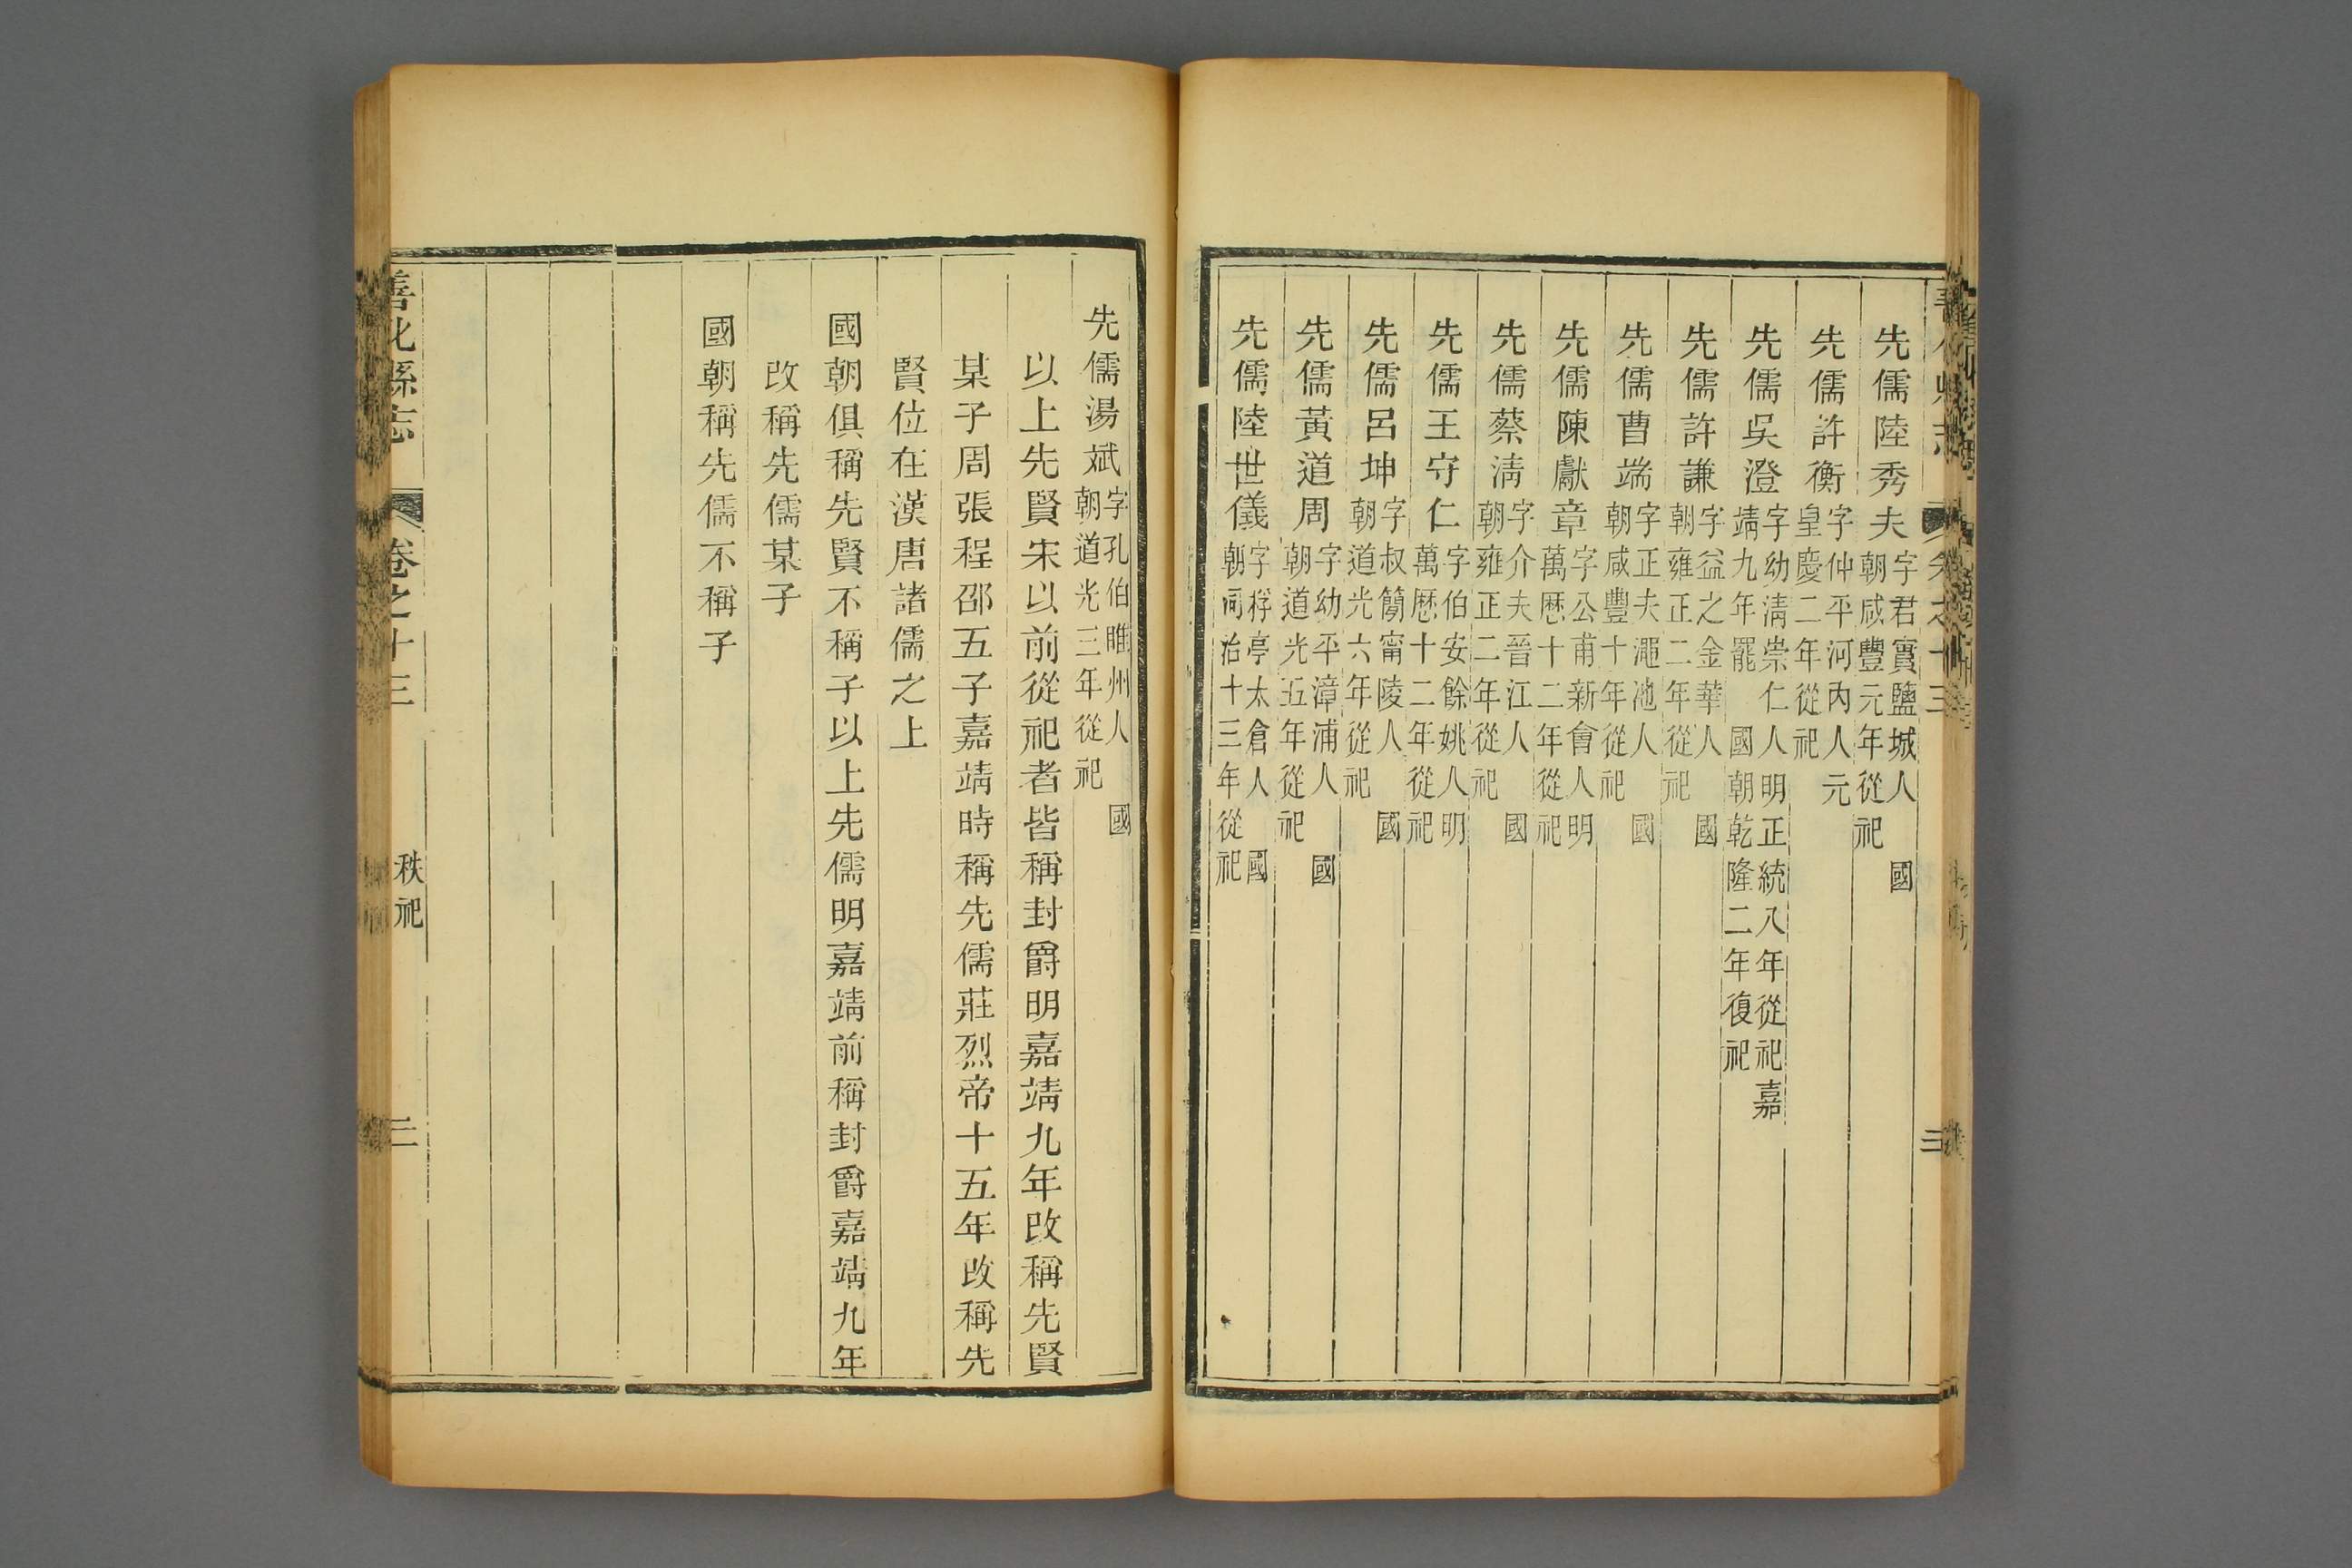 先儒陸秀夫字君實鹽城人 國朝咸豐元年從祀
先儒許衡字仲平河內人元皇慶二年從祀
先儒吳澄字幼淸崇仁人明正統八年從祀嘉靖九年罷 國朝乾隆二年復祀
先儒許謙字益之金華人 國朝雍正二年從祀
先儒曹端字正夫澠池人 國朝咸豐十年從祀
先儒陳獻章字公甫新會人明萬歷十二年從祀
先儒蔡淸字介夫晉江人 國朝雍正二年從祀
先儒王守仁字伯安餘姚人明萬歷十二年從祀
先儒呂坤字叔簡甯陵人 國朝道光六年從祀
先儒黃道周字幼平漳浦人 國朝道光五年從祀
先儒陸世儀字桴亭太倉人 國朝同治十三年從祀
先儒湯斌字孔伯睢州人 國朝道光三年從祀
以上先賢宋以前從祀者皆稱封爵明嘉靖九年改稱先賢
某子周張程邵五子嘉靖時稱先儒莊烈帝十五年改稱先
賢位在漢唐諸儒之上
國朝俱稱先賢不稱子以上先儒明嘉靖前稱封爵嘉靖九年
改稱先儒某子
國朝稱先儒不稱子
善化縣志 卷之十三 秩祀